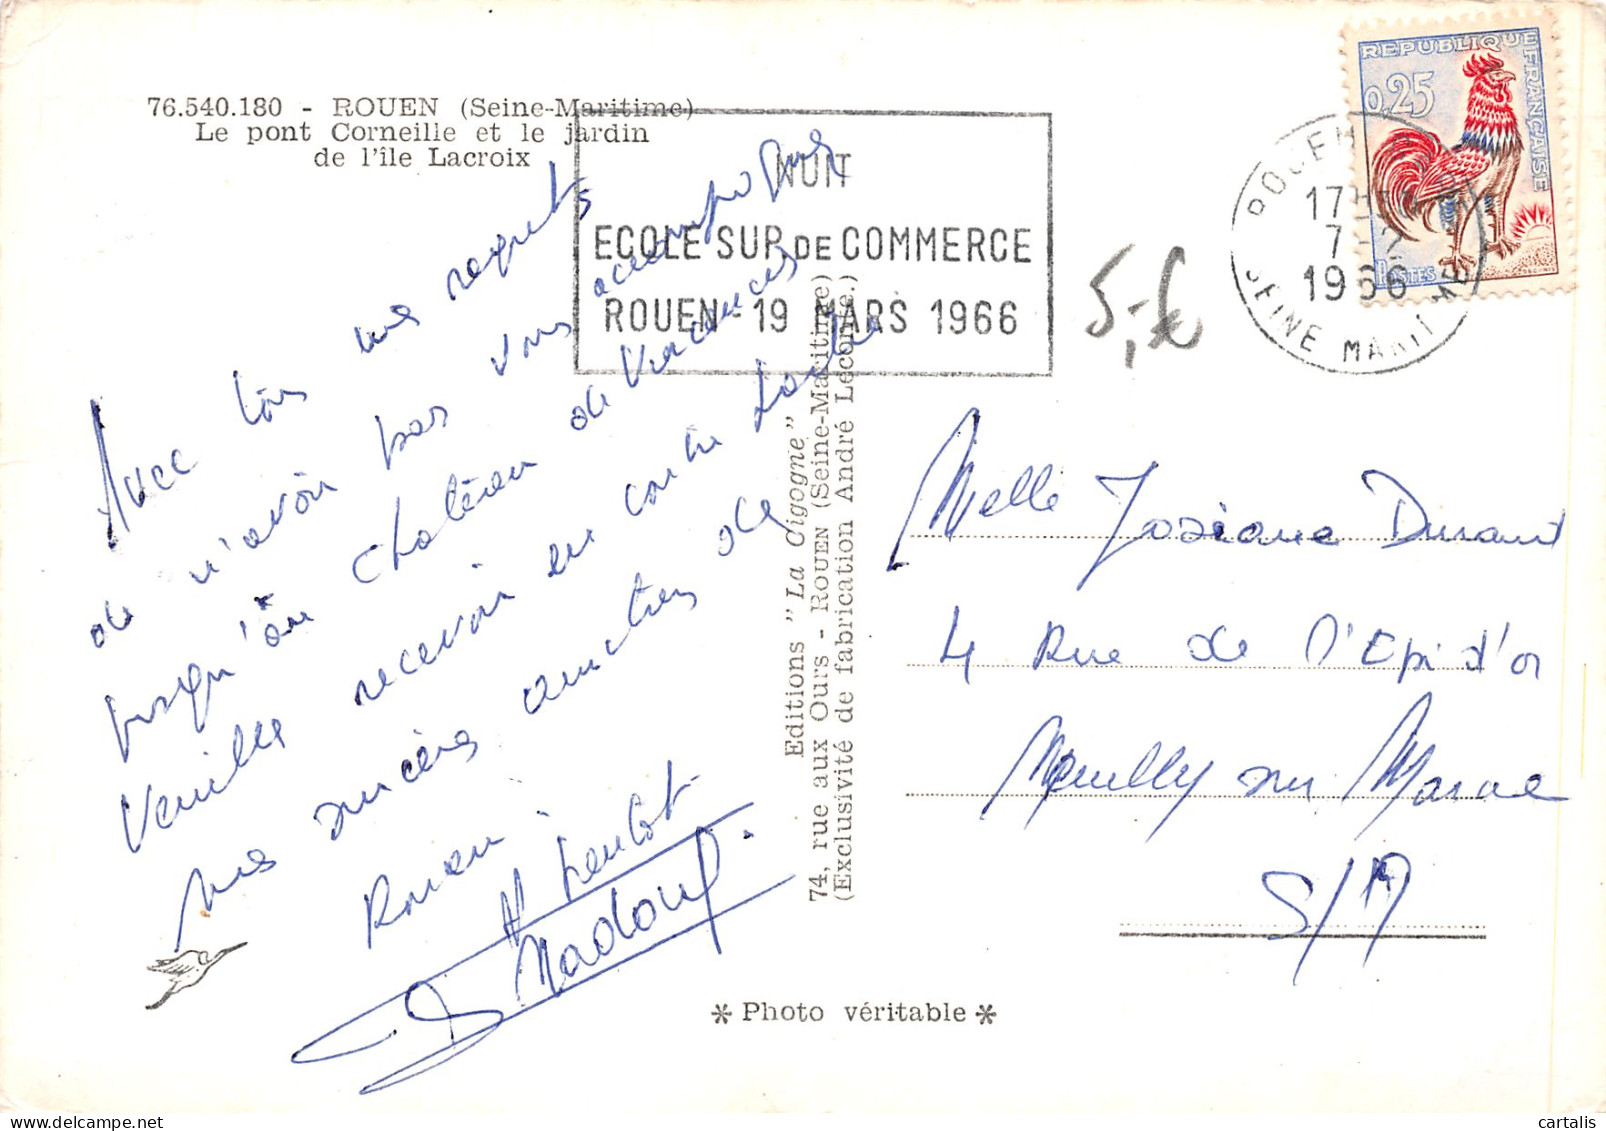 76.540.180 - ROUEN (Seine-Maritime)
Le pont Corneille et le jardin
de l'île Lacroix
NUIT
ECOLE SUP DE COMMERCE
ROUEN - 19 MARS 1966
REPUBLIQUE FRANÇAISE
0,25
POSTES
ROUEN
17H
7-2
1966
SEINE MARITIME
5,-€
Avec tous mes regrets
de n'avoir pas vous accompagner
jusqu'au Chatêau de Vincennes
Veuillez recevoir en contre
mes sincères amitiés de
Rouen.
Editions "La Cigogne"
74, rue aux Ours - ROUEN (Seine-Maritime)
(Exclusivité de fabrication André Leconte.)
Melle Josiane Durant
4 Rue de l'Epi d'or
Neuilly sur Marne
S/M
* Photo véritable *
cartalis
delcampe.net